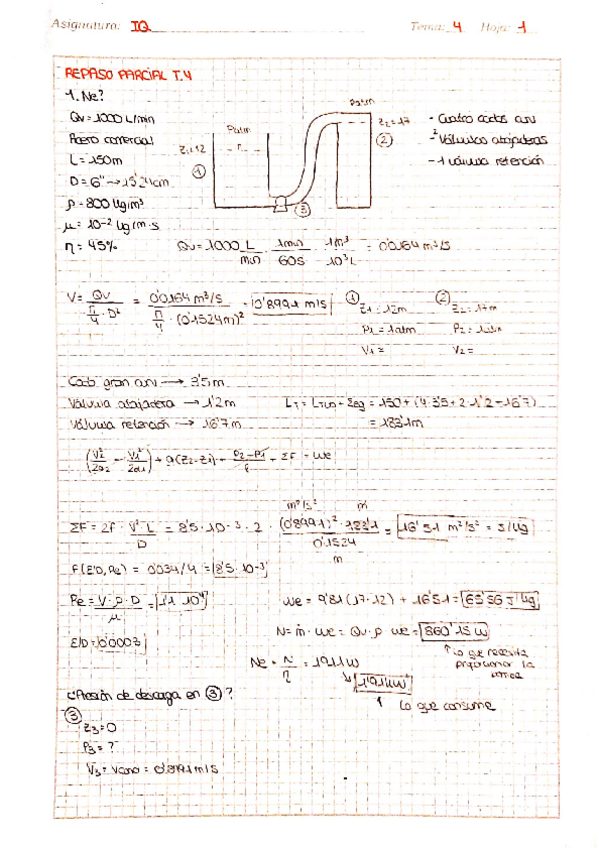 Asignatura: IQ Tema: 4 Hoja: 1
REPASO PARCIAL T.4
1. Ne?
Qv = 1000 L/min
Acero comercial
L = 150m
D = 6" → 15'24cm
ρ = 800 kg/m³
μ = 10⁻² kg/m·s
η = 45%
Patm
Z₁=12
①
Patm
Z₂=17
②
③
- Cuatro codos
- 2 Válvulas atajaderas
- 1 válvula retención
Qv = 1000 L/min · 1min/60s · 1m³/10³L = 0'0164 m³/s
V = Qv/(π/4 · D²) = 0'0164 m³/s / (π/4 · (0'1524m)²) = 0'8991 m/s
① Z₁ = 12m
P₁ = 1atm
V₁ =
② Z₂ = 17m
P₂ = 1atm
V₂ =
Codo gran → 3'5m
Válvula atajadera → 1'2m
Válvula retención → 16'7m
LT = + Leq = 150 + (4·3'5 + 2·1'2 + 16'7)
= 183'1m
(V₂²/2α₂ - V₁²/2α₁) + g(Z₂-Z₁) + (P₂-P₁)/ρ + ΣF = We
ΣF = 2f · V²·L/D = 8'5·10⁻³ · 2 · (0'8991)² · 183'1 / 0'1524 = 16'51 m²/s² = J/kg
m²/s² m
m
f(ε/D, Re) = 0'034/4 = 8'5·10⁻³
Re = V·ρ·D/μ = 1'1·10⁴
ε/D = 0'0003
We = 9'81 (17-12) + 16'51 = 65'56 J/kg
N = ṁ·We = Qv·ρ·We = 860'15 W
↑ Lo que necesita
proporcionar la
Ne = N/η = 1911W
↳ 1'911kW
↑ Lo que consume
¿Presión de descarga en ③?
③
Z₃ = 0
P₃ = ?
V₃ = = 0'8991 m/s